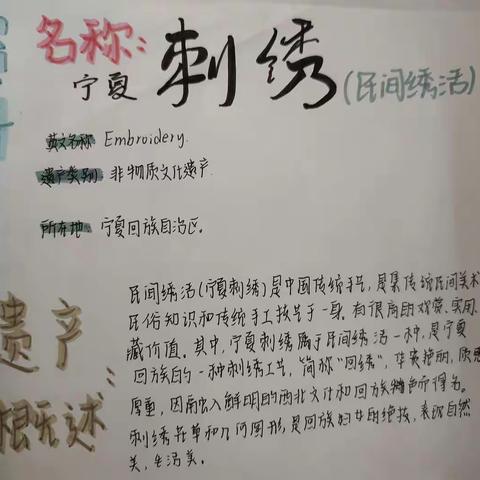 名称：
宁夏 刺绣（民间绣活）
英文名称 Embroidery.
遗产类别 非物质文化遗产
所在地： 宁夏回族自治区。
遗产
概述：
民间绣活（宁夏刺绣）是中国传统手艺，是集传统民间美术
民俗知识和传统手工技艺于一身。有很高的观赏、实用、
藏价值。其中，宁夏刺绣属于民间绣活一种，是宁夏
回族的一种刺绣工艺，简称“回绣”，华美艳丽，质感
厚重，因融入鲜明的西北文化和回族特色而得名。
刺绣花草和几何图形，是回族妇女的绝技，表现自然
美，生活美。